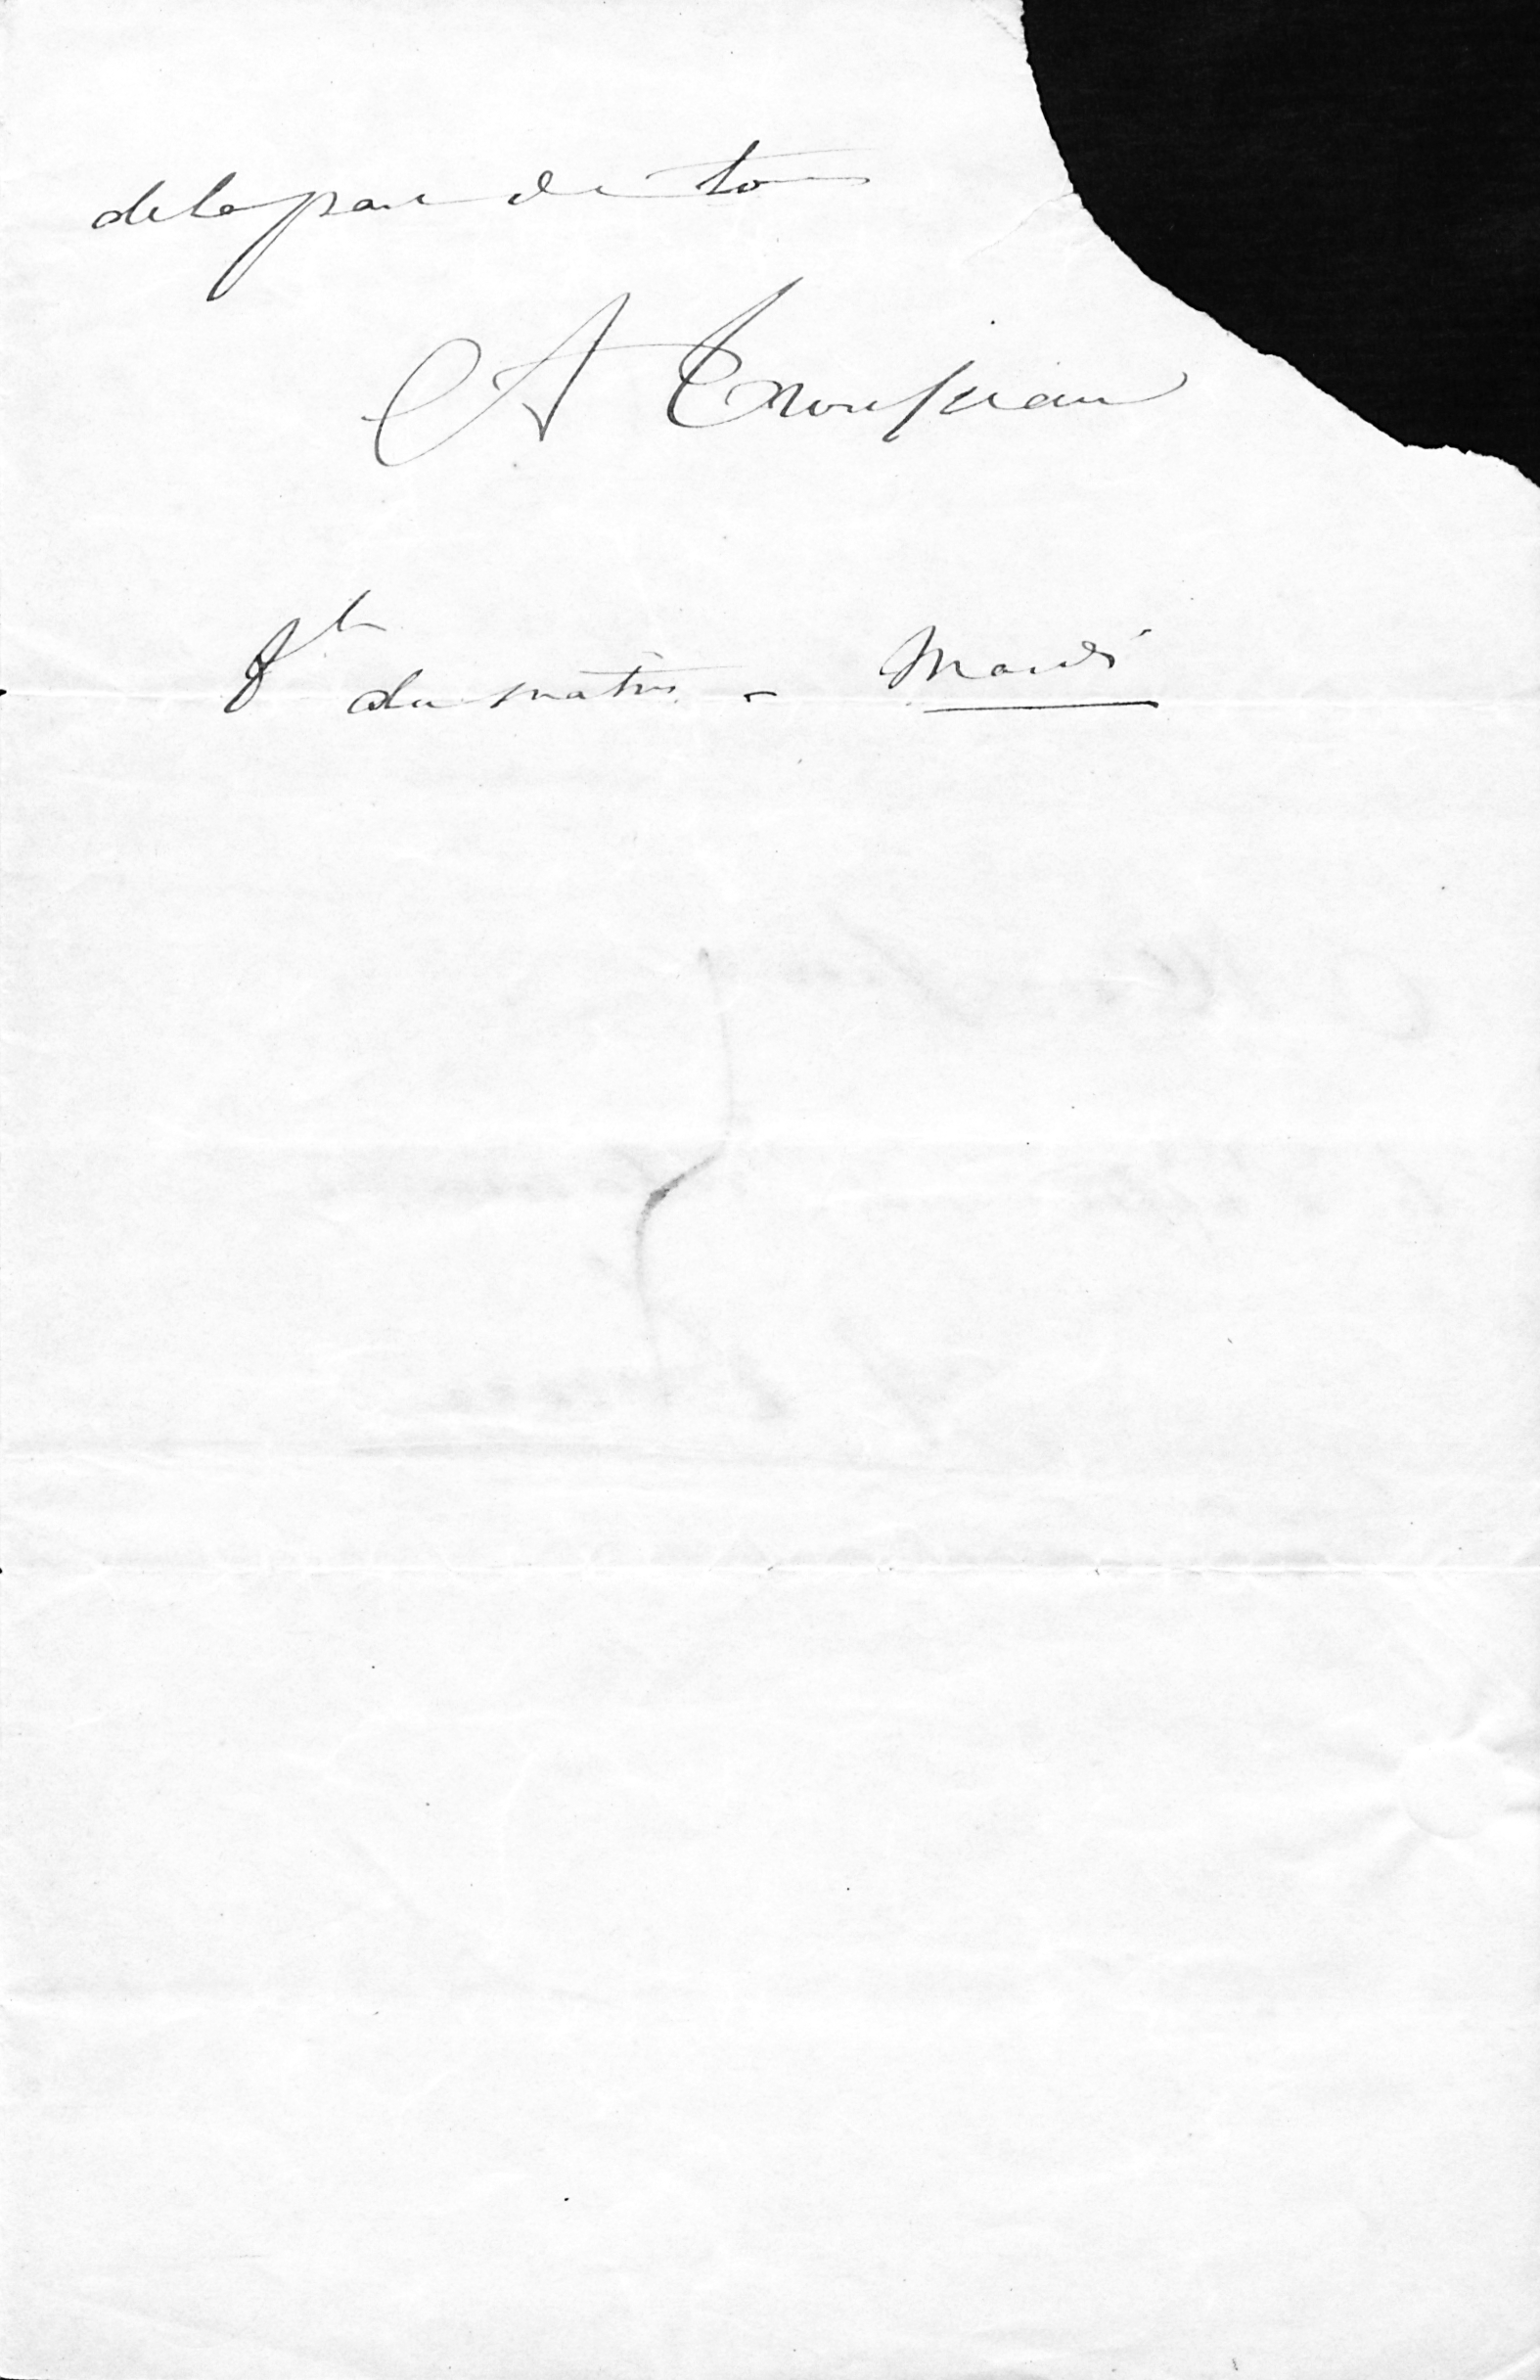 de la part de tous
A Trousseau
8 h du matin - Mardi